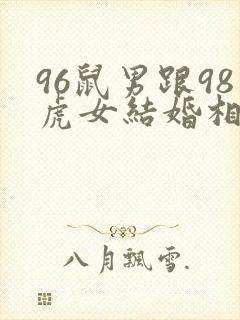 96鼠男跟98
虎女結婚相
八月飄雪.